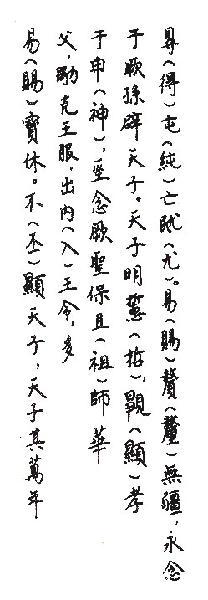 㝵(得)屯(純)亡敃(尤)。易(賜)贅(釐)無疆,永念
于厥孫辟天子。天子明悊(哲),覭(顯)孝
于申(神),巠念厥聖保且(祖)師華
父,勵克王服,出內(入)王令,多
易(賜)寶休。不(丕)顯天子,天子其萬年